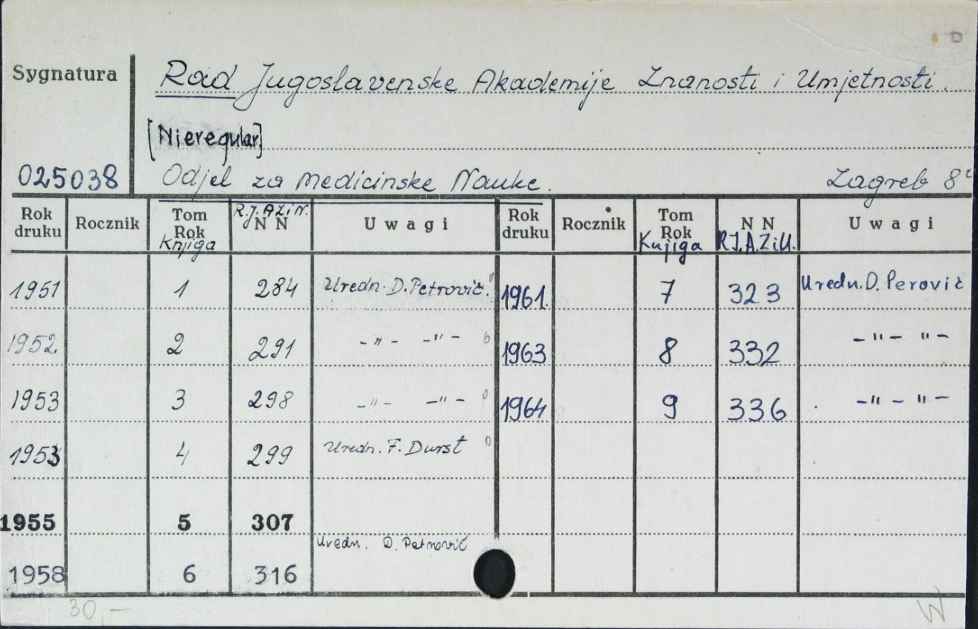 Sygnatura
Rad Jugoslavenske Akademije Znanosti i Umjetnosti.
[Nieregular]
025038
Odjel za medicinske Nauke.
Zagreb 8°
Rok druku Rocznik Tom Rok Knjiga R.J.A.Z.i.N. N N Uwagi Rok druku Rocznik Tom Rok Knjiga N N R.J.A.Z.i.U. Uwagi
1951 1 284 Uredn. D. Petrović. 1961. 7 323 Uredn. D. Perović
1952. 2 291 -"- -"- 1963 8 332 -"- "-
1953 3 298 -"- -"- 1964 9 336 -"- "-
1953 4 299 Uredn. F. Durst
1955 5 307
1958 6 316 Uredn. D. Petrović
30,-
W